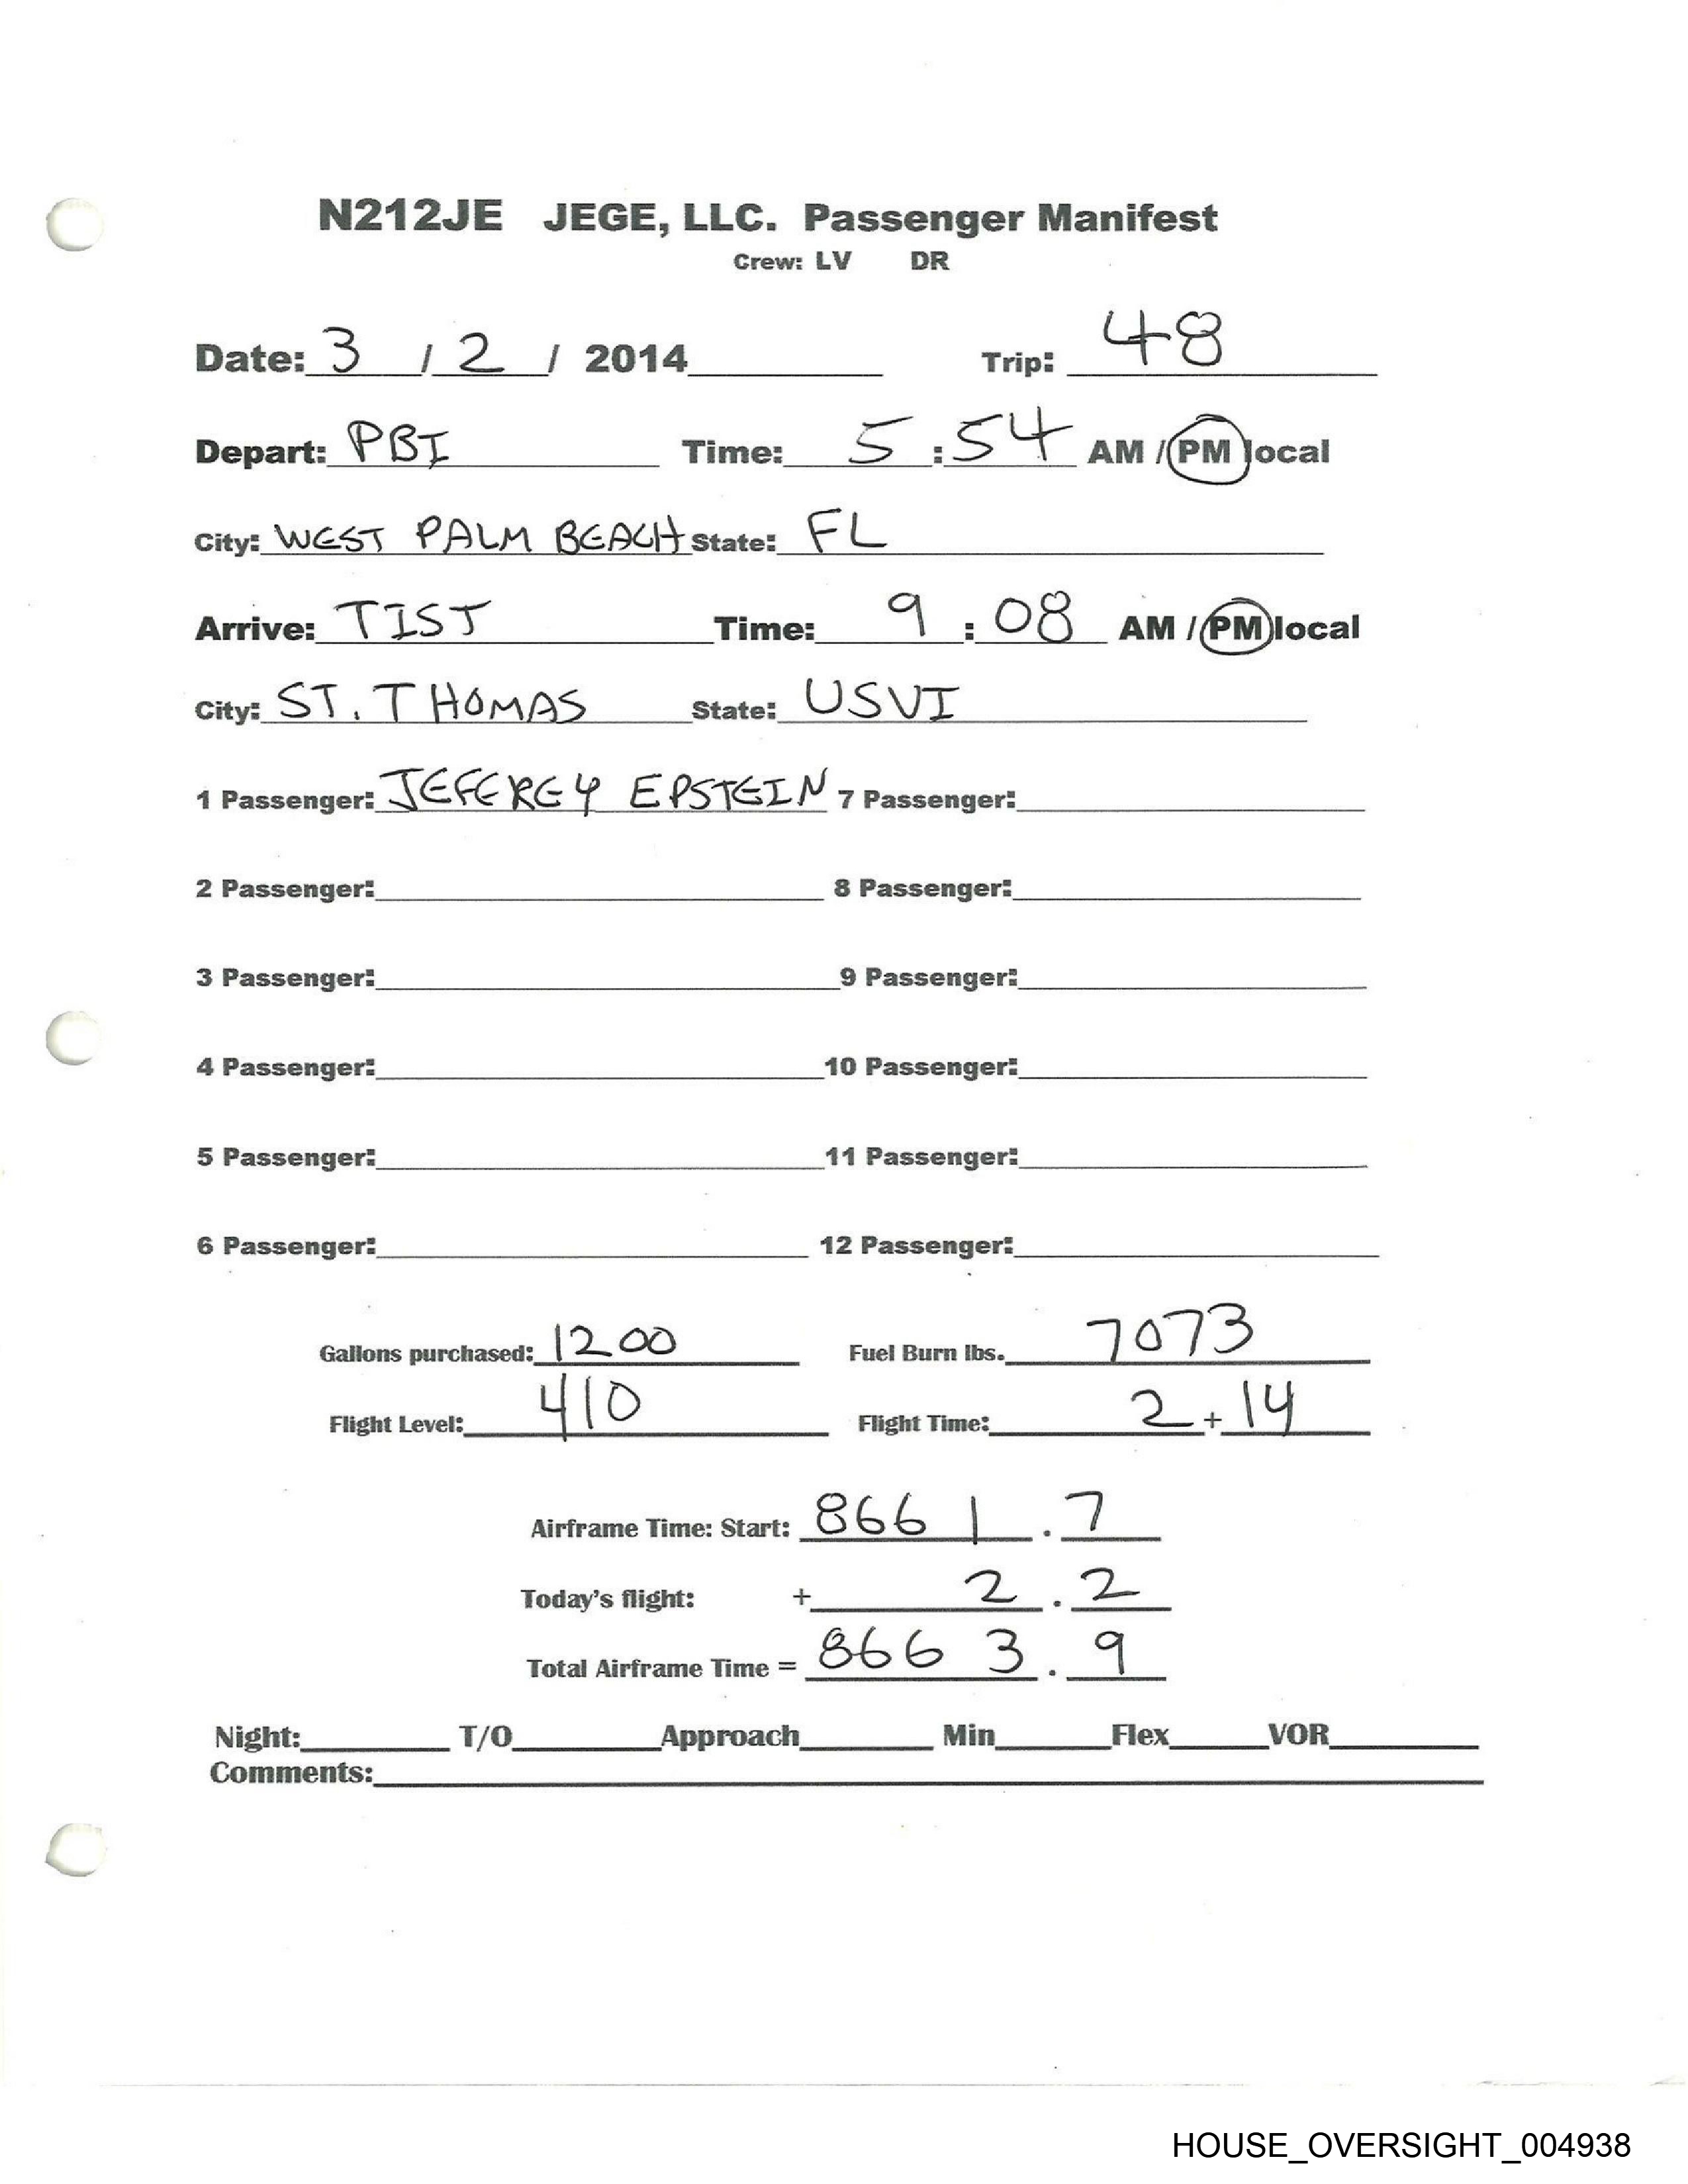 N212JE JEGE, LLC. Passenger Manifest
Crew: LV DR
Date: 3 / 2 / 2014 Trip: 48
Depart: PBI Time: 5:54 AM / PM local
City: WEST PALM BEACH State: FL
Arrive: TIST Time: 9:08 AM / PM local
City: ST. THOMAS State: USVI
1 Passenger: JEFFREY EPSTEIN 7 Passenger:
2 Passenger: 8 Passenger:
3 Passenger: 9 Passenger:
4 Passenger: 10 Passenger:
5 Passenger: 11 Passenger:
6 Passenger: 12 Passenger:
Gallons purchased: 1200 Fuel Burn lbs. 7073
Flight Level: 410 Flight Time: 2 + 14
Airframe Time: Start: 8661.7
Today's flight: + 2.2
Total Airframe Time = 8663.9
Night: T/O Approach Min Flex VOR
Comments:
HOUSE_OVERSIGHT_004938